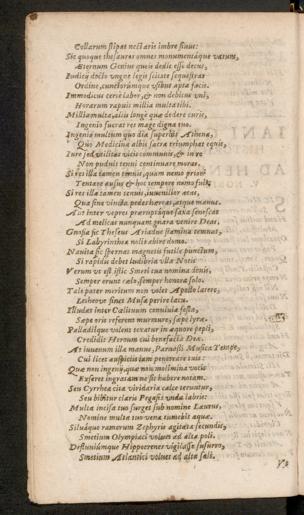 Collarum stipat nectaris imbre sinus:
Sic quoque thesauros omnes monumentáque vatum,
Æternum Genius queis dedit esse decus,
Iudicij docto vngue legis scitate sequestras
Ordine, cunctorúmque vsibus apta facis.
Immodicus certè labor, & non debitus vni,
Horarum rapuit millia multa tibi.
Millia multa, alij longè quæ dedere curis,
Ingenio fueras res magè digna tuo.
Ingenio multum quo dia superbit Athena,
Quo Medicina albis sacra triumphat equis,
Iure sed vtilitas vicit communis, & in re
Non potuit tenui continuare moras.
Si res illa tamen tenuis, quam nemo priorum
Tentare ausus & hoc tempore nemo fuit,
Si res illa tamen tenuis, iuueniliter acte,
Qua sine vincta pedes hæreat, atque manus.
Aut inter vepres præruptáque saxa senescat
Ad meticas nunquam gnara venire Deas.
Gnosia sic Theseus Ariadna stamina temnat,
Si Labyrinthæa nolit abire domo.
Nauita sic spernat magnetis futile punctum,
Si rapidis debet ludibria vela Notis
Verum vt est istic Smeti tua nomina denis,
Semper erunt cælo, semper honora solo.
Tale pater meritum non volet Apollo latere,
Letheóve sinet Musa perire lacu.
Illudet inter Cælituum conuiuia festa,
Sæpe oris referent murmure, sæpe lyra.
Palladióque volent texatur in æquore pepli,
Credidit Heroum cui benefacta Dea.
At iuuenum illa manus, Parnassi Musica Tempe,
Cui licet auspiciis iam penetrare tuis:
Quæ non ingenij, quæ non molimina vocis
Euseret ingratam ne sit habere notam.
Seu Cyrrhea citæ viridaria calce terentur,
Seu bibitur clari Pegasis vnda labris:
Multa incisa tuo surget sub nomine Laurus,
Nomine multa tuo vena tumebit aquæ.
Siluáque ramorum Zephyris agitata secundis,
Smetium Olympiaci voluet ad alta poli.
Defluuiúmque Hippocrenes vigilasse susurro,
Smetium Atlantici voluet ad alta sali.